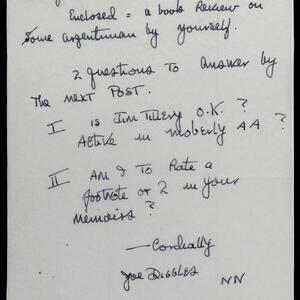 Enclosed = a book Review on
Some argentinian by yourself.
2 questions to answer by
The next Post.
I is Jim Tillery O.K. ?
Active in Moberly AA ?
II am I to Rate a
footnote or 2 in your
memoirs ?
—Cordially
Joe DIGGLES
NN